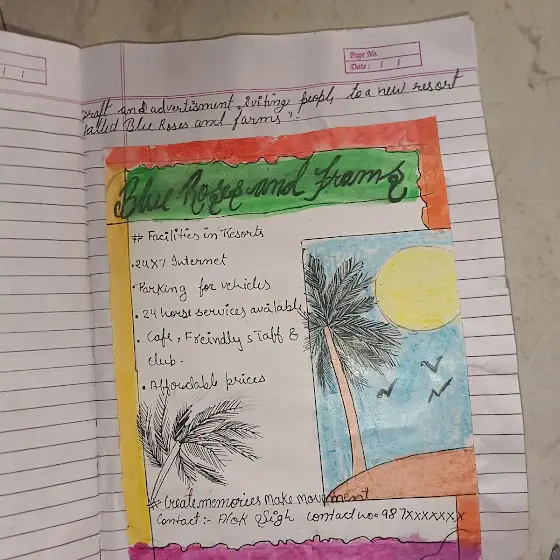 Page No.
Date: / /
craft and advertisment, iviting people to a new resort
called Blue Roses and farms".
Blue Roses and frams
# Facilities in Resorts
• 24X7 Internet
• Parking for vehicles
• 24 horse services available
• Cafe, Freindly staff &
club.
• Affordable prices
* Create memories make movement
Contact :- Alok Sigh contact no= 987XXXXXXX